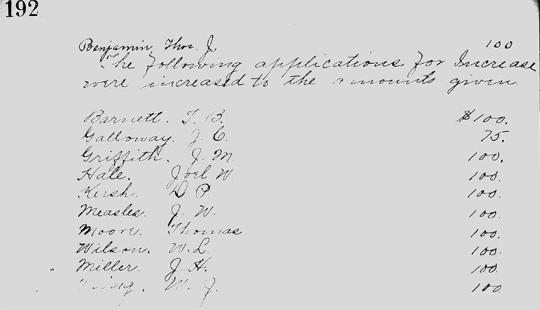 192
Benjamin, Thos. J. 100
The following applications for Increase
were increased to the amounts given
Barnett. T. B. $100.
Galloway. J. C. 75.
Griffith. J. M 100.
Hale. Joel W 100.
Kersh. D P 100.
Measles. J. W. 100.
Moore. Thomas 100.
Wilson. W. L 100.
Miller. J. H. 100
W. J. 100